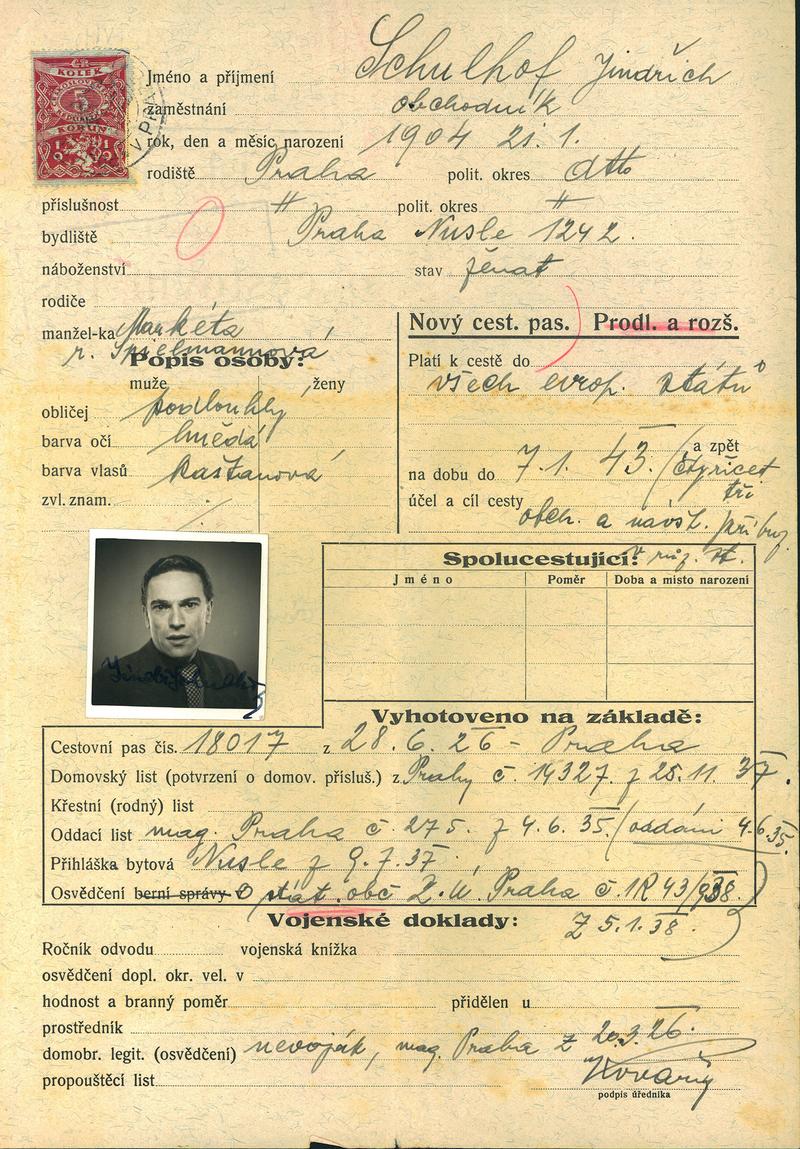 KOLEK
5
KORUN
1919
V PRAZE
Jméno a příjmení Schulhof Jindřich
zaměstnání obchodník
rok, den a měsíc narození 1904 21. 1.
rodiště Praha polit. okres dtto
příslušnost 〃 polit. okres 〃
bydliště Praha Nusle 1242.
náboženství stav ženat
rodiče
manžel-ka Markéta
r. Spielmannová
Nový cest. pas. Prodl. a rozš.
Popis osoby:
muže ženy
obličej podlouhlý
barva očí hnědá
barva vlasů kaštanová
zvl. znam.
Platí k cestě do
všech evrop. států
a zpět
na dobu do 7. 1. 43. (čtyřicet
tři
účel a cíl cesty
obch. a návšt. příbuz.
v růz. st.
Spolucestující:
Jméno Poměr Doba a místo narození
Vyhotoveno na základě:
Cestovní pas čís. 18017 z 28. 6. 26 - Praha
Domovský list (potvrzení o domov. přísluš.) z Prahy č. 14327. z 25. 11. 37.
Křestní (rodný) list
Oddací list mag. Praha č. 275. z 4. 6. 35. (oddáni 4. 6. 35.
Přihláška bytová Nusle z 9. 7. 37.
Osvědčení berní správy o stát. obč. Z. Ú. Praha č. 1R 43/938.
Z 5. 1. 38.
Vojenské doklady:
Ročník odvodu vojenská knížka
osvědčení dopl. okr. vel. v
hodnost a branný poměr přidělen u
prostředník
domobr. legit. (osvědčení) nevoják, mag. Praha z 20. 3. 26.
propouštěcí list
podpis úředníka